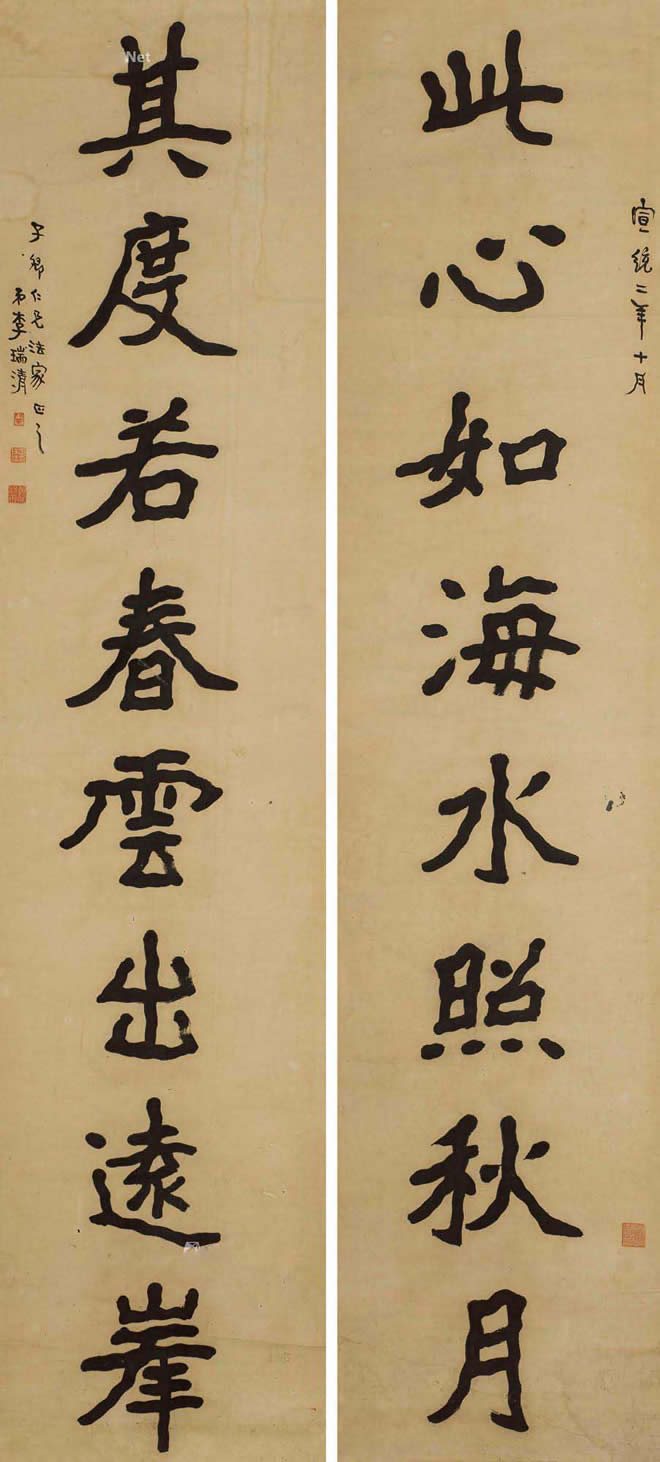 此心如海水照秋月
宣統二年十月
其度若春雲出遠峯
子卿仁兄法家正之
弟李瑞清
Net